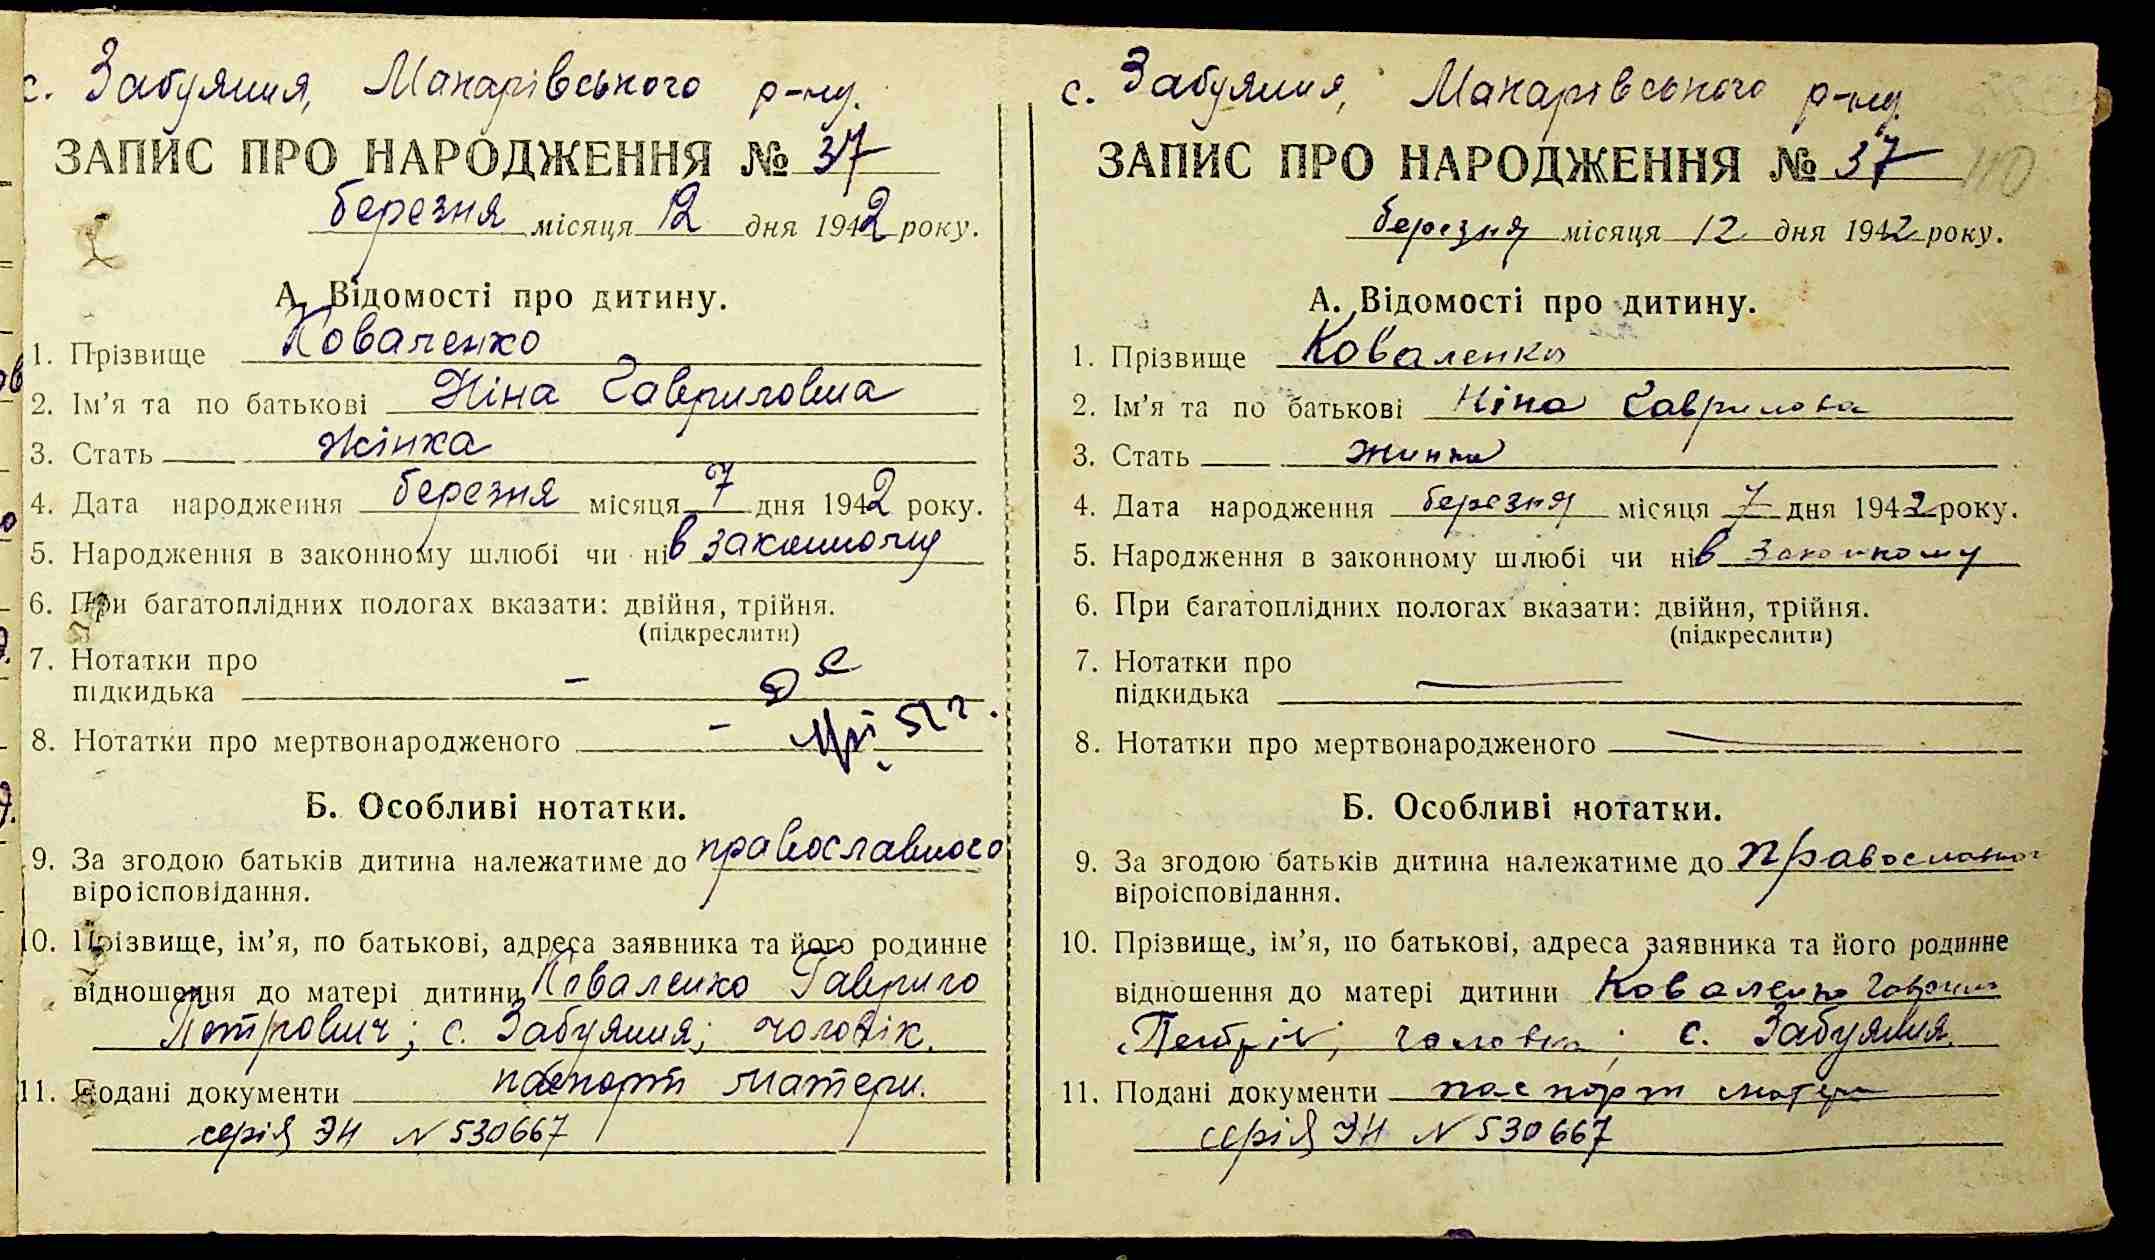 с. Забуяння, Макарівського р-ну.
ЗАПИС ПРО НАРОДЖЕННЯ № 37
березня місяця 12 дня 1942 року.
А. Відомості про дитину.
1. Прізвище Коваленко
2. Ім'я та по батькові Ніна Гавриловна
3. Стать жінка
4. Дата народження березня місяця 7 дня 1942 року.
5. Народження в законному шлюбі чи ні в законному
6. При багатоплідних пологах вказати: двійня, трійня.
(підкреслити)
7. Нотатки про
підкидька –
8. Нотатки про мертвонародженого – 51 г.
Б. Особливі нотатки.
9. За згодою батьків дитина належатиме до православного
віроісповідання.
10. Прізвище, ім'я, по батькові, адреса заявника та його родинне
відношення до матері дитини Коваленко Гаврило
Петрович; с. Забуяння; чоловік.
11. Подані документи паспорт матери.
серія ЭН N 530667
с. Забуяння, Макарівського р-ну.
ЗАПИС ПРО НАРОДЖЕННЯ № 37 110
березня місяця 12 дня 1942 року.
А. Відомості про дитину.
1. Прізвище Коваленко
2. Ім'я та по батькові Ніна Гаврилова
3. Стать жинка
4. Дата народження березня місяця 7 дня 1942 року.
5. Народження в законному шлюбі чи ні в законному
6. При багатоплідних пологах вказати: двійня, трійня.
(підкреслити)
7. Нотатки про
підкидька —
8. Нотатки про мертвонародженого —
Б. Особливі нотатки.
9. За згодою батьків дитина належатиме до православного
віроісповідання.
10. Прізвище, ім'я, по батькові, адреса заявника та його родинне
відношення до матері дитини Коваленко Гаврило
с. Забуяння.
11. Подані документи паспорт матери
серія ЭН N 530667